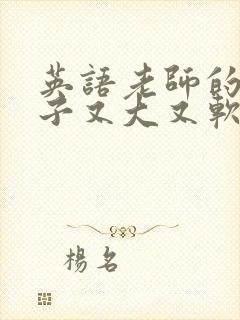 英語老師的
子又大又軟
楊名